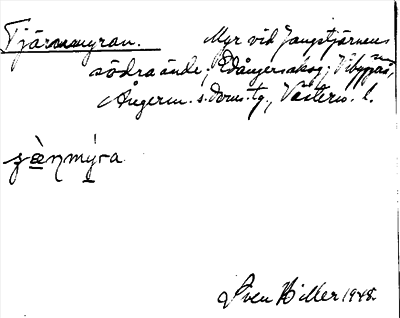 Tjärnmyran. Myr vid Jangstjärnens
södra ände, Edångersskog, Vibyggerå,
Ångerm. s. doms. tg., Västern. l.
Sven Hiller 1948.